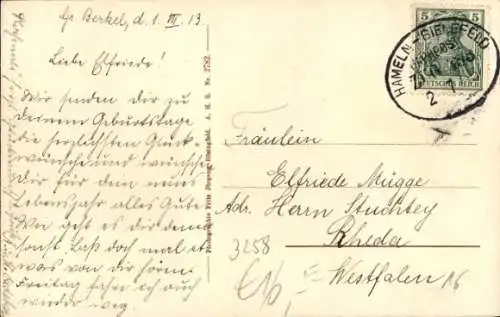 Gr. Berkel, d. 1. III. 13
Liebe Elfriede!
Wir senden dir zu
deinem Geburtstage
die herzlichsten Glück-
wünsche und wünschen
Dir für dein neues
Lebensjahr alles Gute.
Wie geht es dir denn
sonst. Laß doch mal et-
was von dir hören.
Freitag fahre ich auch
wieder weg.
Nr. 2782
5 5
DEUTSCHES REICH
HAMELN-BIELEFELD
BAHNPOST
ZUG
2 3
Fräulein
Elfriede Mügge
Adr. Herrn Stuchtey
Rheda
Westfalen
3258